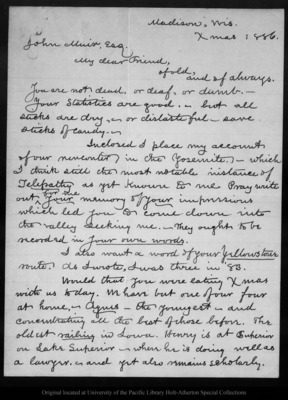 Madison, Wis.
Xmas, 1886.
John Muir, Esq.
My dear friend,
of old,
and of always.
You are not dead, or deaf, or dumb.—
Your Statistics are good.— but all
sticks are dry,— or distasteful— save
sticks of candy.—
Inclosed I place my account
of our rencontre in the Yosemite,— which
I think still the most notable instance of
Telepathy as yet known to me. Pray write
out for me your memory of your impressions
which led you to come down into
the valley seeking me.— They ought to be
recorded in your own words.
I also want a word of your Yellowstone
route. As I wrote, I was there in '83.
Would that you were eating Xmas
with us today. We have but one of our four
at home,— Agnes— the youngest— and
concentrating all the best of those before. The
oldest in Iowa. Henry is at Superior
on Lake Superior— where he is doing well as
a lawyer.— and yet also remains scholarly.
Original located at University of the Pacific Library Holt-Atherton Special Collections